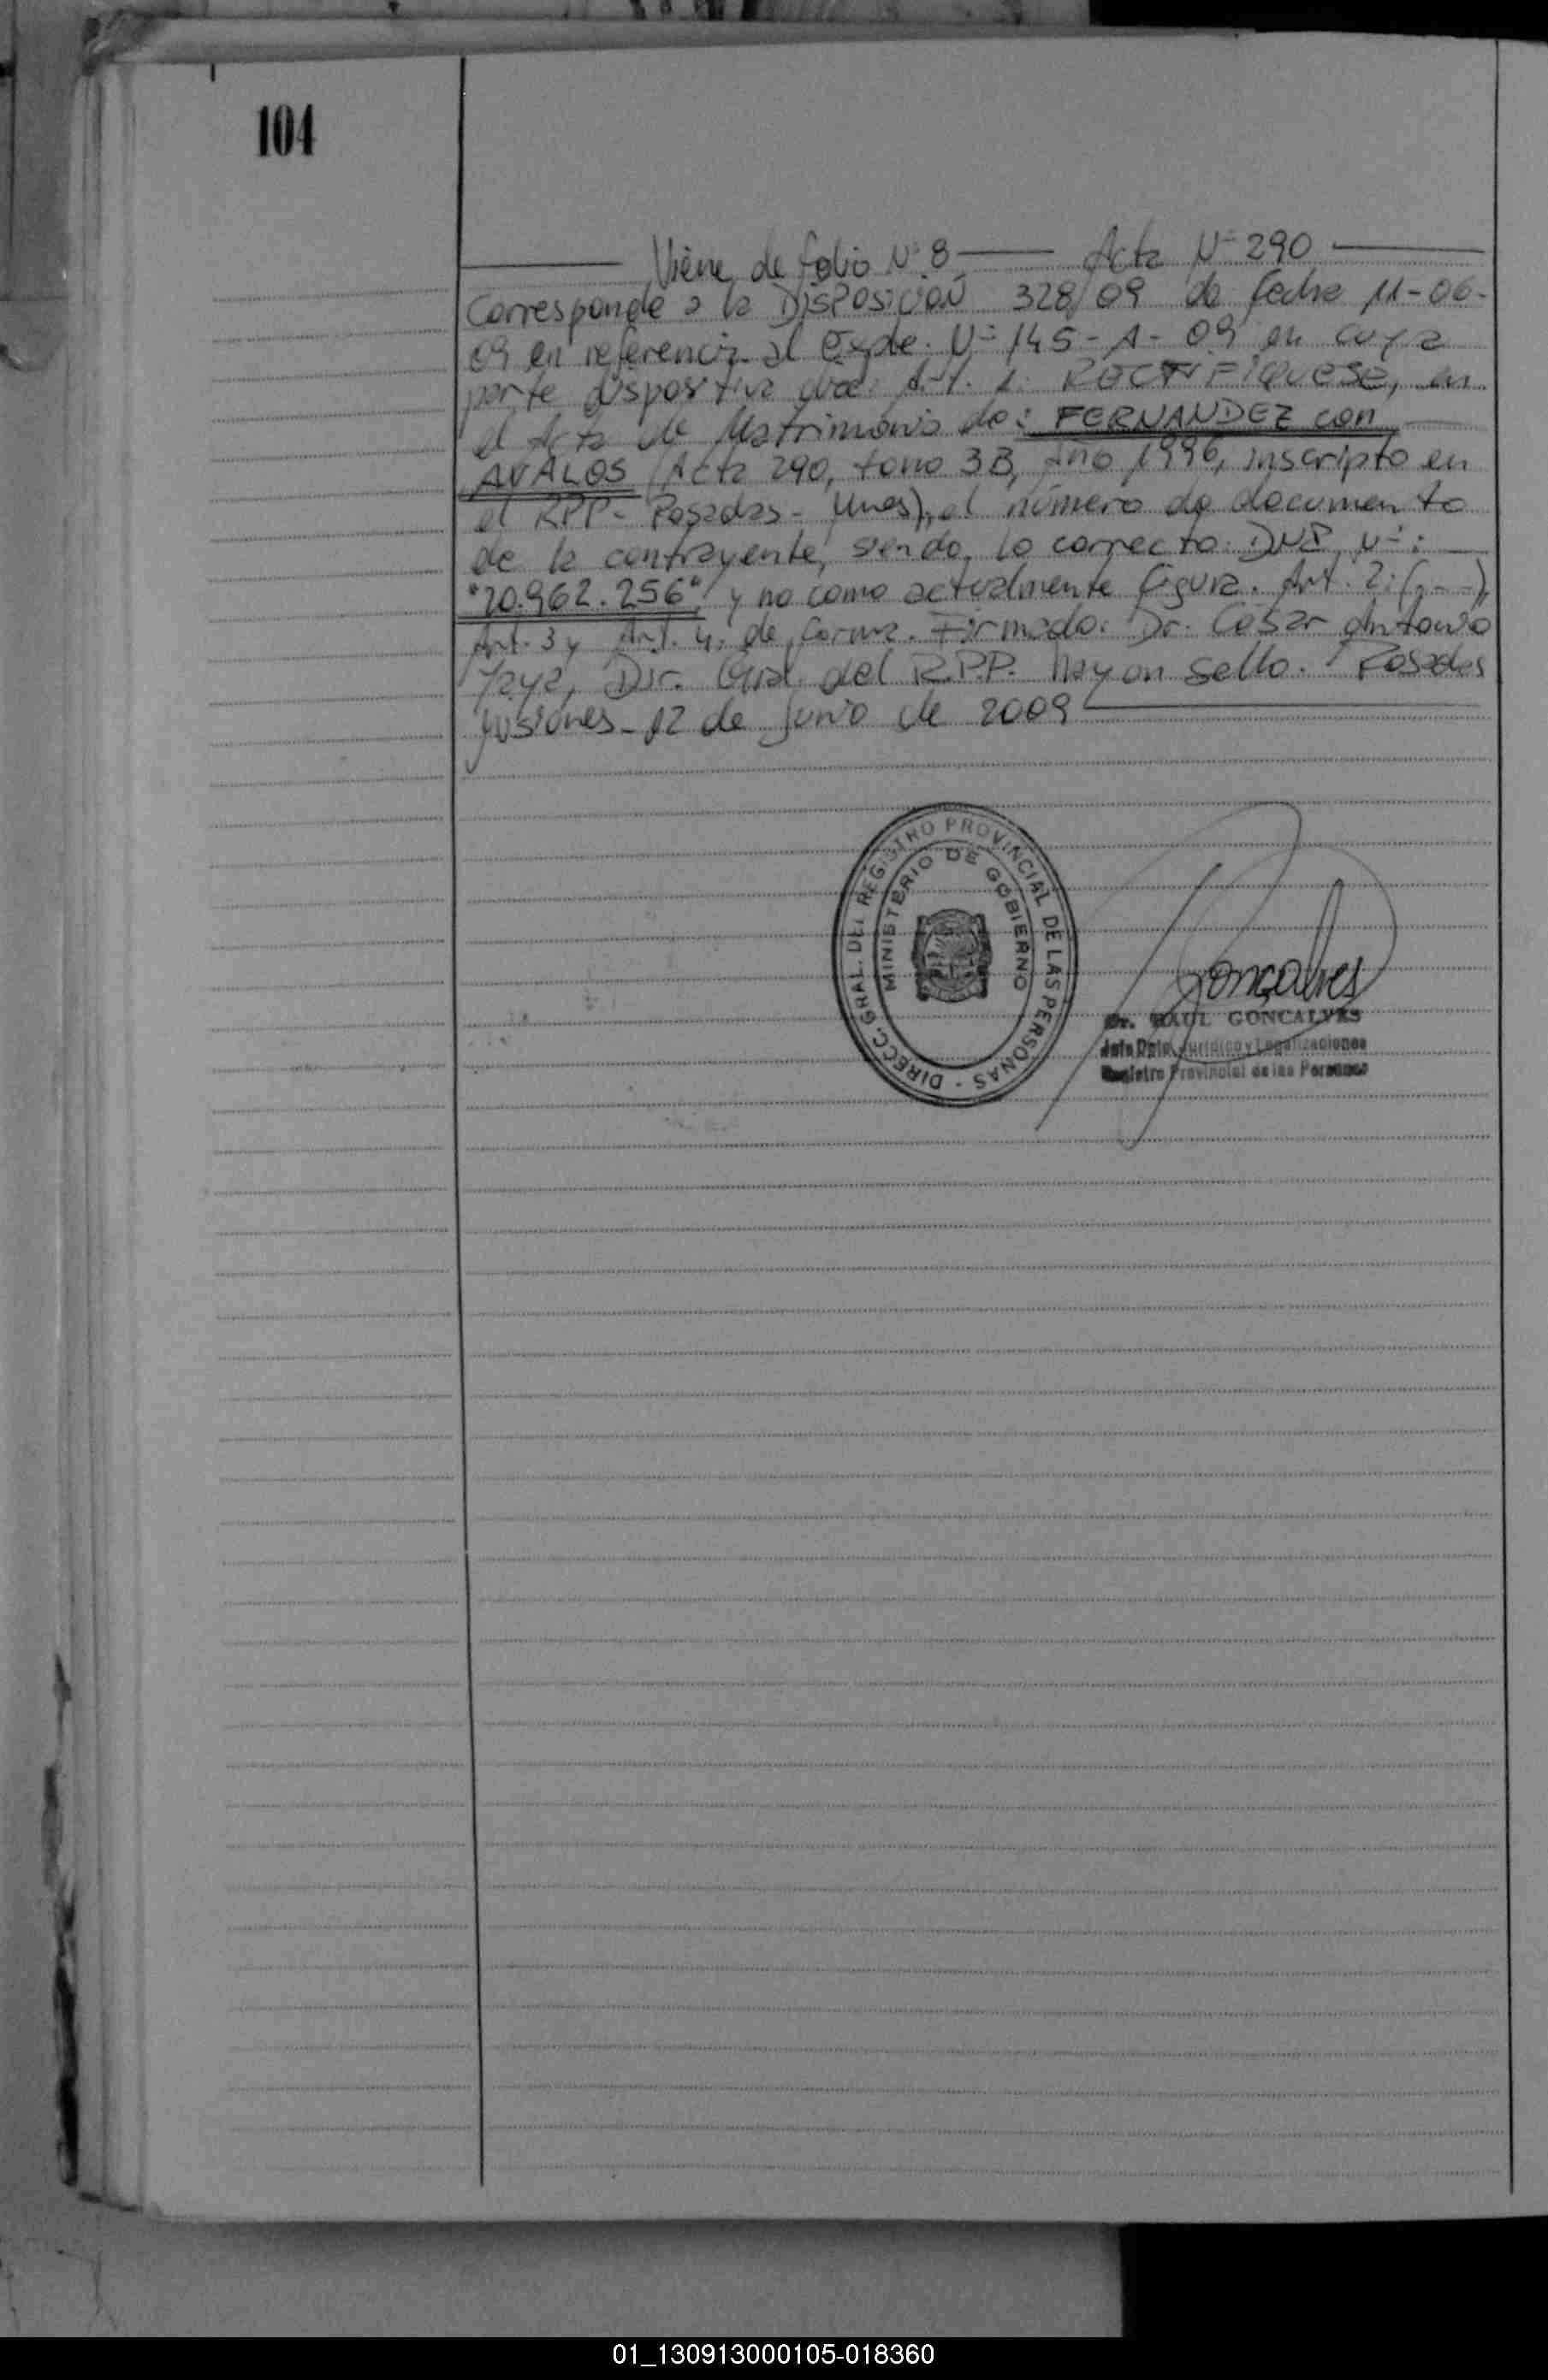 104
Viene de folio Nº 8 Acta Nº 290
Corresponde a la DISPOSICION 328/09 de fecha 11-06-
09 en referencia al Expte. Nº 145-A-09 en cuya
parte dispositiva dice: Art. 1: RECTIFIQUESE, en
el Acta de Matrimonio de: FERNANDEZ con
AVALOS (Acta 290, tomo 3B, Año 1996, inscripto en
el RPP- Posadas- Mnes), el número de documento
de la contrayente, siendo lo correcto: DNI Nº:
"20.962.256" y no como actualmente figura. Art. 2: (---),
Art. 3 y Art. 4: de forma. Firmado: Dr. César Antonio
Yaya, Dir. Gral. del R.P.P. hay un sello. Posadas
Misiones- 12 de junio de 2009
DIRECC. GRAL. DEL REGISTRO PROVINCIAL DE LAS PERSONAS -
MINISTERIO DE GOBIERNO
Goncalves
Dr. RAUL GONCALVES
Jefe Dpto. Jurídico y Legalizaciones
Registro Provincial de las Personas
01_130913000105-018360